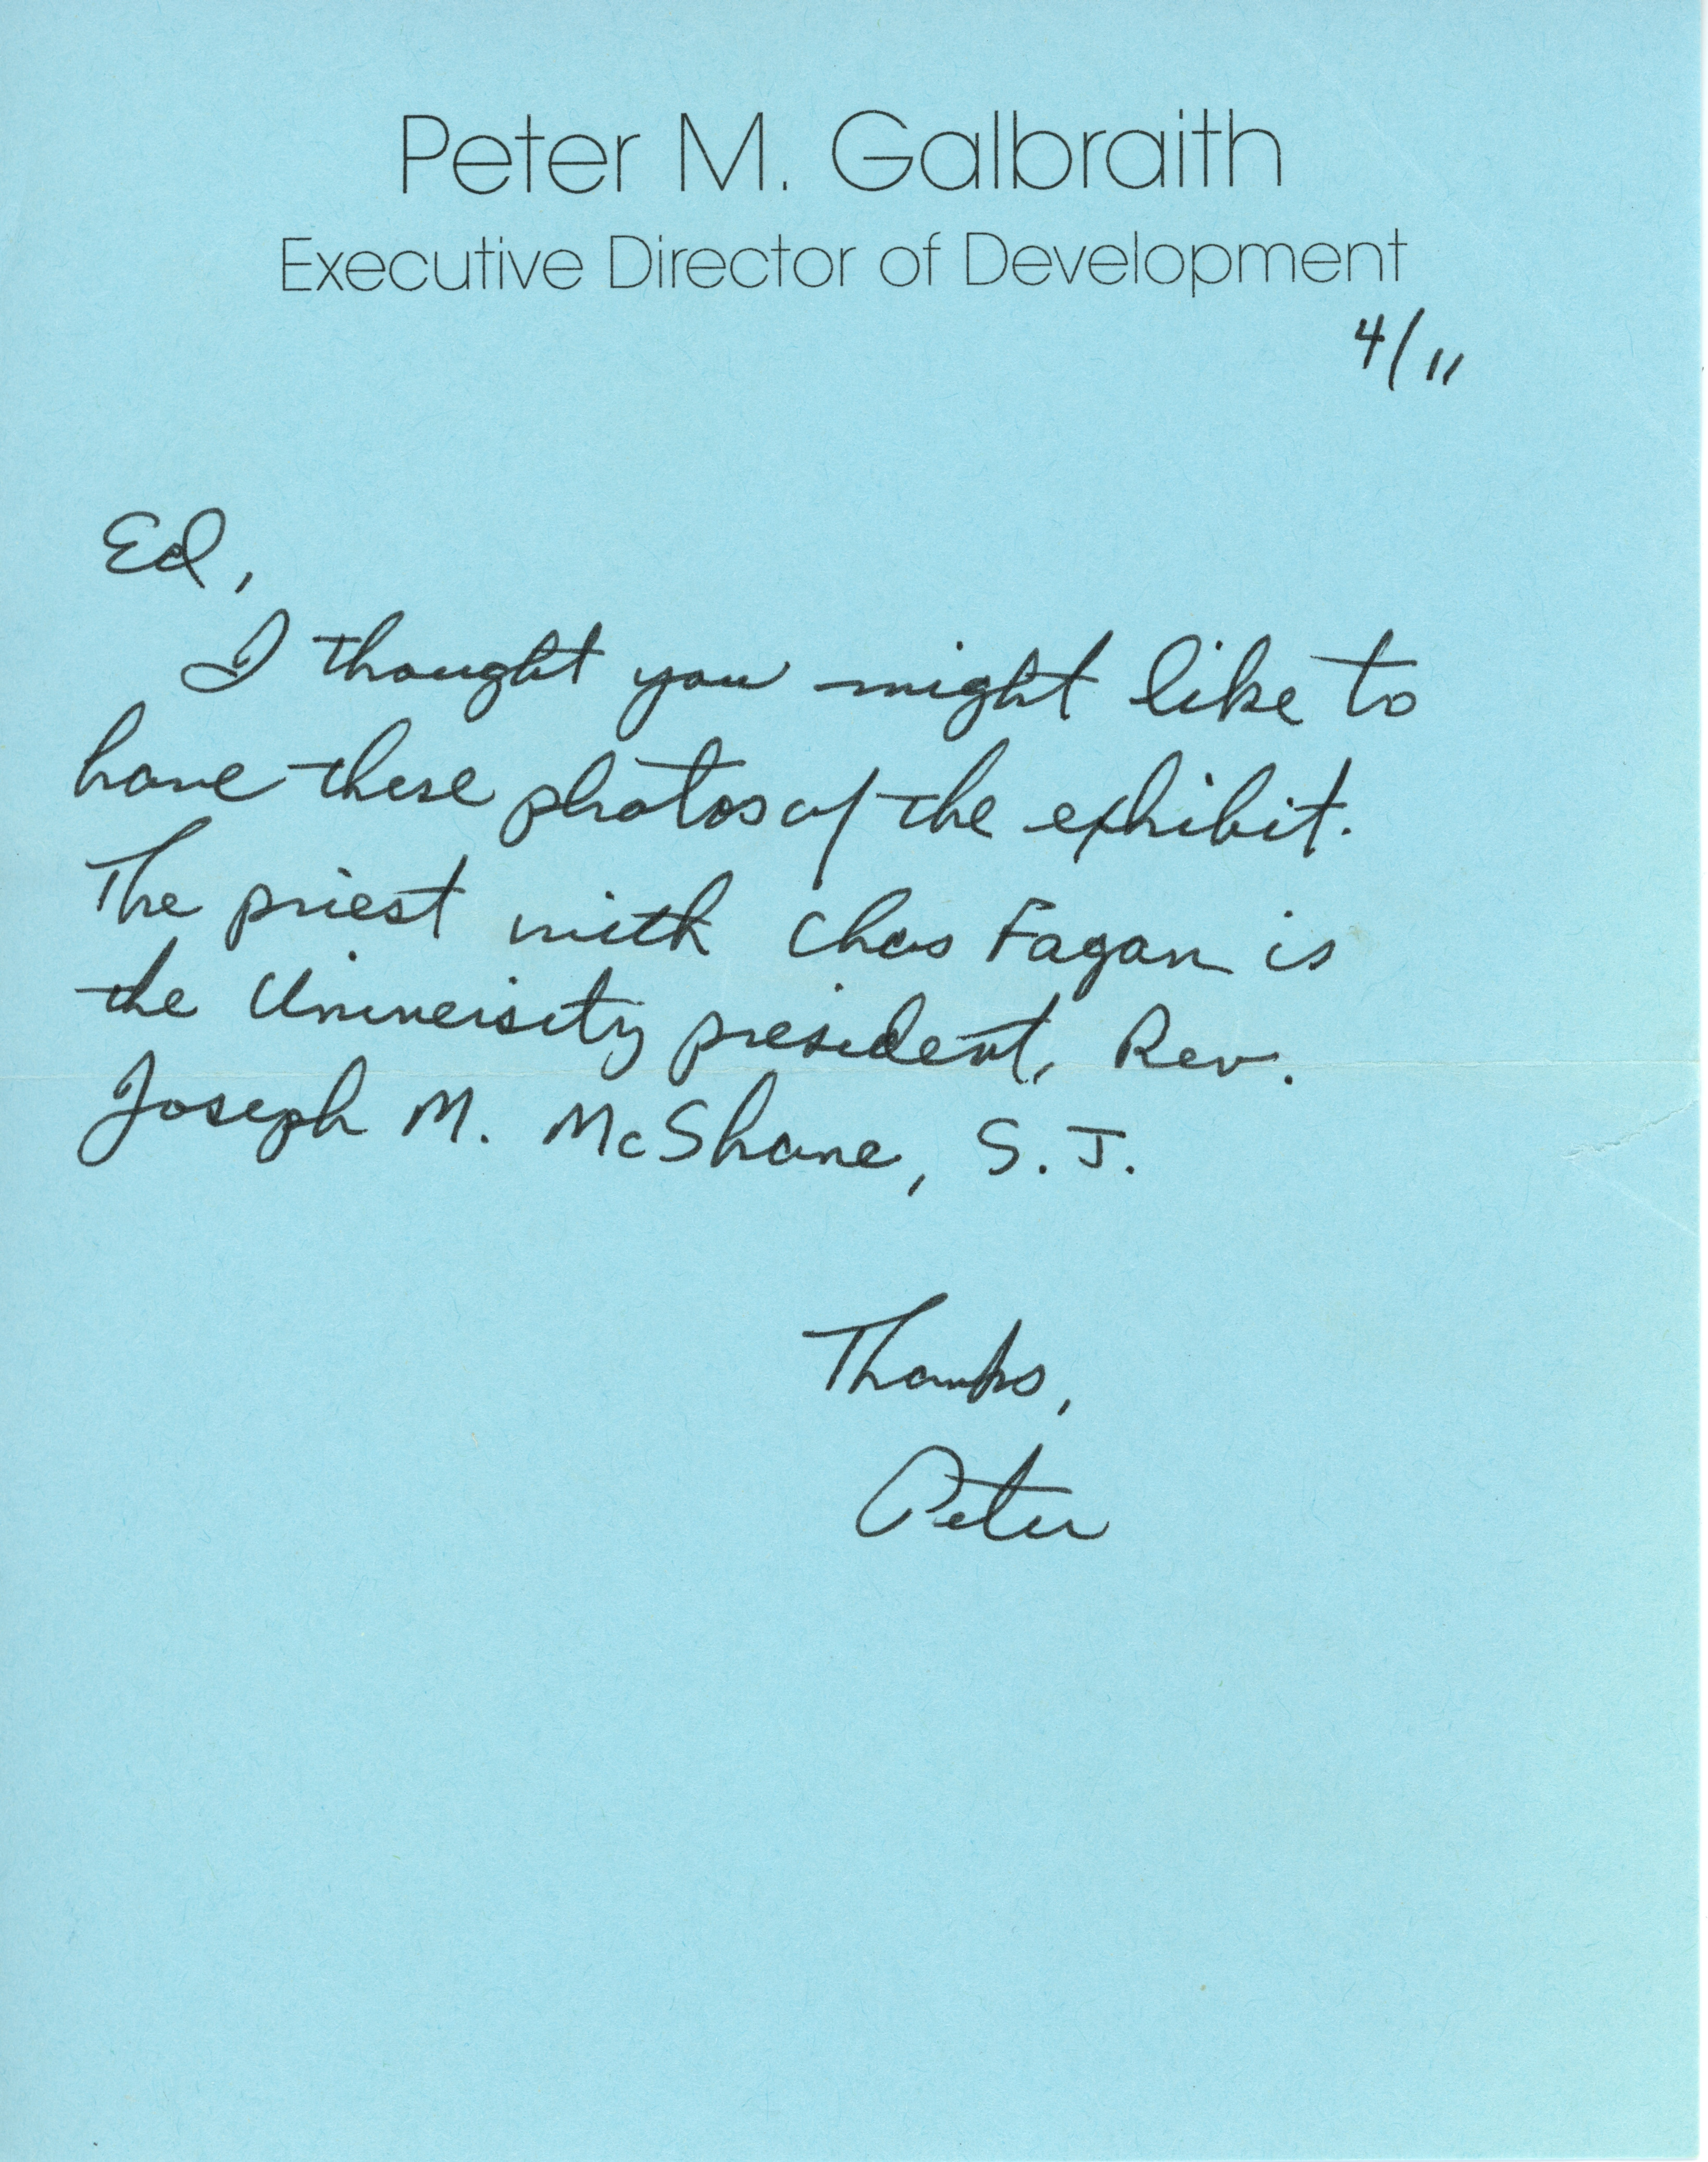 Peter M. Galbraith
Executive Director of Development
4/11
Ed,
I thought you might like to
have these photos of the exhibit.
The priest with Chas Fagan is
the University president, Rev.
Joseph M. McShane, S. J.
Thanks,
Peter